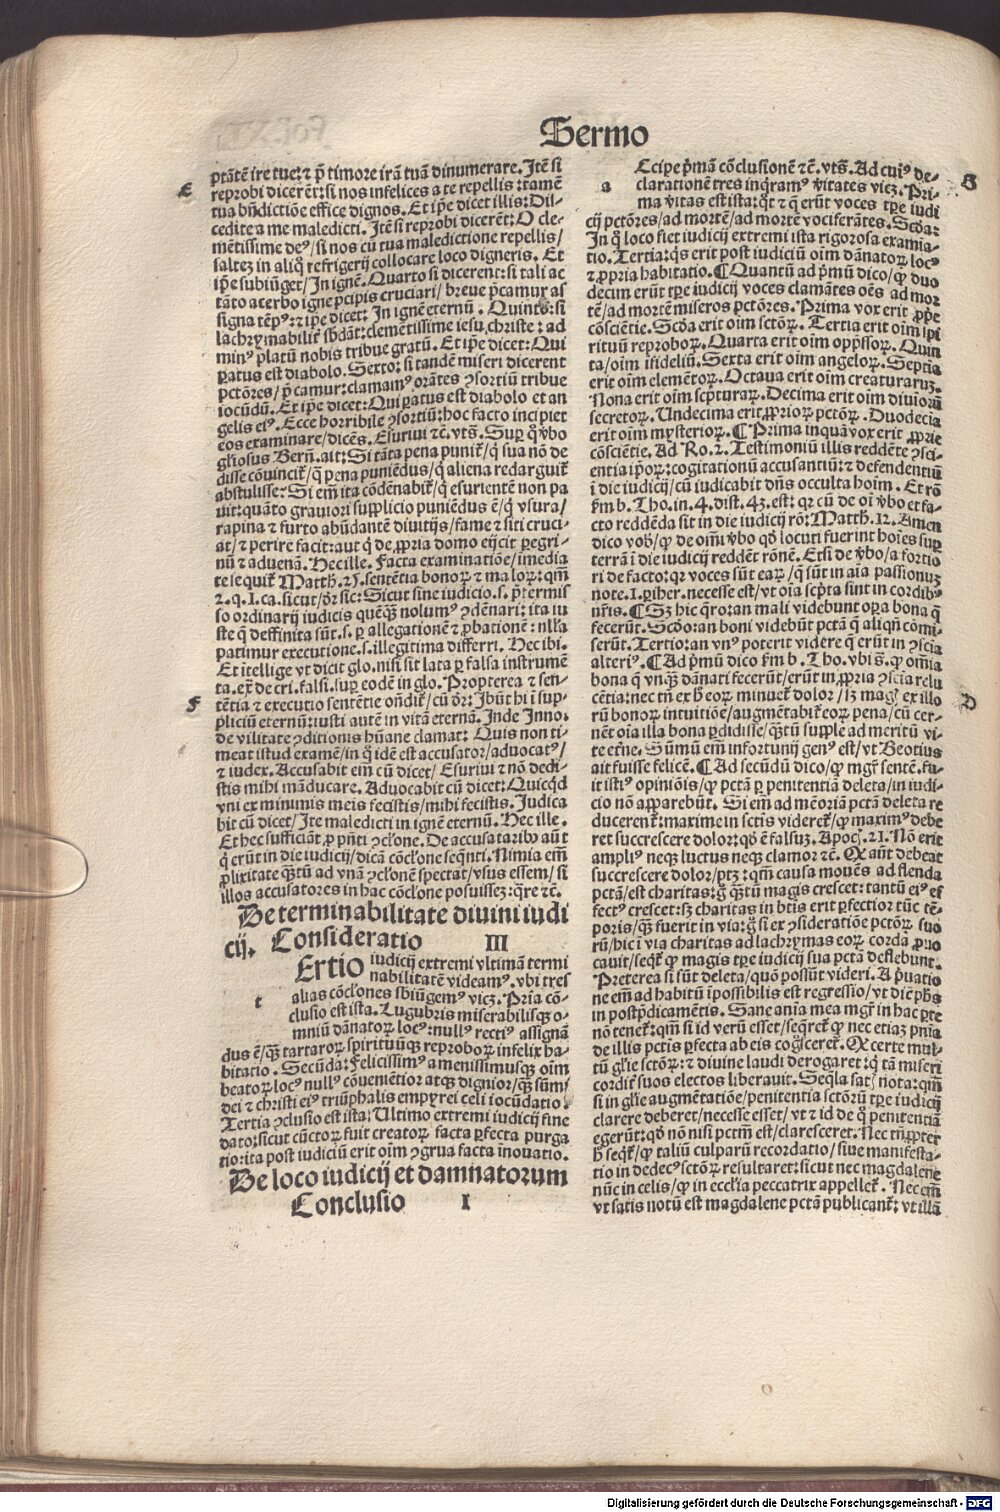 Sermo
ptātē ire tue: ⁊ p̄ timore irā tuā dinumerare. Itē si
E
reprobi dicerēt: si nos infelices a te repellis: tamē
tua bn̄dictiōe effice dignos. Et ip̄e dicet illis: Dis-
cedite a me maledicti. Itē si reprobi dicerēt: O cle-
mētissime deꝰ/ si nos cū tua maledictione repellis/
saltez in aliq̊ refrigerij collocare loco digneris. Et
ip̄e subiūget/ In ignē. Quarto si dicerent: si tali ac
tāto acerbo igne p̄cipis cruciari/ breue p̄camur as
signa tēpꝰ: ⁊ ip̄e dicet: In ignē eternū. Quinto: si
lachrymabilit̓ sbdāt: clemētissime iesu christe: ad
minꝰ p̄latū nobis tribue gratū. Et ip̄e dicet: Qui
ꝑatus est diabolo. Sexto: si tandē miseri dicerent
pctōres/ p̄camur: clamamꝰ orātes ꝯsortiū tribue
iocūdū. Et ip̄e dicet: Qui ꝑatus est diabolo et an
gelis eiꝰ. Ecce horribile ꝯsortiū: hoc facto incipiet
eos examinare/ dicēs. Esuriui ⁊c̄. vts̄. Suꝑ q̊ v̓bo
gl̓iosus Bern̄. ait: Si tāta pena punit̄/ q̓ sua nō de
disse cōuincit̄/ q̄ pena puniēdus/ q̓ aliena redarguit̄
abstulisse: Si em̄ ita cōdēnabit̄/ q̓ esurientē non pa
uit: quāto grauiori supplicio puniēdus ē/ q̓ vsura/
rapina ⁊ furto abūdantē diuitijs/ fame ⁊ siti cruci-
at/ ⁊ perire facit: aut q̓ de ꝓpria domo eijcit ꝑegri-
nū ⁊ aduenā. Hec ille. Facta examinatiōe/ imedia
te sequit̄ Matth. 25. sentētia bonoꝝ ⁊ maloꝝ: qm̄
2. q. 1. ca. sicut/ dr̄ sic: Sicut sine iudicio .s. p̄termis
so ordinarij iudicis quēq̄ꝫ nolumꝰ ꝯdēnari: ita iu
ste q̄ deffinita sūt .s. ꝑ allegationē ⁊ ꝓbationē: nll̓a
patimur executione .s. illegitima differri. Hec ibi.
Et itellige vt dicit glo. nisi sit lata ꝑ falsa instrumē
ta. ex̄ de cri. falsi. suꝑ eodē in glo. Propterea ⁊ sen-
F
tētia ⁊ executio sentētie on̄dit̄/ cū dr̄: Ibūt hi ī sup-
pliciū eternū: iusti autē in vitā eternā. Inde Inno.
de vilitate ꝯditionis hūane clamat: Quis non ti-
meat istud examē/ in q̊ idē est accusator/ aduocatꝰ/
⁊ iudex. Accusabit em̄ cū dicet/ Esuriui ⁊ nō dedi-
stis mihi māducare. Aduocabit cū dicet: Quicq̄d
vni ex minimis meis fecistis/ mihi fecistis. Iudica
bit cū dicet/ Ite maledicti in ignē eternū. Hec ille.
Et hec sufficiāt ꝓ pn̄ti ꝯclone. De accusatoribꝰ aūt
q̓ erūt in die iudicij/ dicā cōclone seq̄nti. Nimia em̄
ꝓlixitate q̄ꝫtū ad vnā ꝯclonē spectat/ vsus essem/ si
illos accusatores in hac cōclone posuissez: q̄re ⁊c̄.
De terminabilitate diuini iudi
cij. Consideratio III
t
Ertio iudicij extremi vltimā termi
nabilitatē videamꝰ. vbi tres
alias cōclones sbiūgemꝰ vicꝫ. Prīa cō-
clusio est ista. Lugubris miserabilisq̄ꝫ o-
mniū dānatoꝝ locꝰ: nullꝰ rectiꝰ assignā
dus ē/ q̄ꝫ tartaroꝝ spirituūq̄ꝫ reproboꝝ infelix ha-
bitatio. Secūda: Felicissimꝰ amenissimusq̄ꝫ oīm
beatoꝝ locꝰ nullꝰ cōuenientior atq̄ꝫ dignior/ q̄ꝫ sūmi
dei ⁊ christi eiꝰ triūphalis empyrei celi iocūdatio.
Tertia ꝯclusio est ista: Ultimo extremi iudicij fine
dato: sicut cūctoꝝ fuit creatoꝝ facta ꝑfecta purga
tio: ita post iudiciū erit oīm ꝯgrua facta inouatio.
De loco iudicij et damnatorum
Conclusio I
a
Ccipe p̄mā cōclusionē ⁊c̄. vts̄. Ad cuiꝰ de-
G
clarationē tres inq̓ramꝰ v̓itates vicꝫ. Pri-
ma v̓itas est ista: q̓t ⁊ q̄ erūt voces tꝑe iudi
cij pctōres/ ad mortē/ ad mortē vociferātes. Scd̓a:
In q̊ loco fiet iudicij extremi ista rigorosa examia-
tio. Tertia: q̓s erit post iudiciū oīm dānatoꝝ locꝰ
⁊ ꝓpria habitatio. ¶ Quantū ad p̄mū dico/ ꝙ duo
decim erūt tꝑe iudicij voces clamātes oēs ad mor
tē/ ad mortē miseros pctōres. Prima vox erit ꝓp̓e
cōsciētie. Scd̓a erit oīm sctōꝝ. Tertia erit oīm spi
rituū reproboꝝ. Quarta erit oīm opp̄ssoꝝ. Quin
ta/ oīm ifideliū. Sexta erit oīm angeloꝝ. Septīa
erit oīm elemētoꝝ. Octaua erit oīm creaturaruꝫ.
Nona erit oīm scpturaꝝ. Decima erit oīm diuinoꝝ
secretoꝝ. Undecima erit ꝓprioꝝ pctōꝝ. Duodecīa
erit oīm mysterioꝝ. ¶ Prima inquā vox erit ꝓprie
cōsciētie. Ad Ro. 2. Testimoniū illis reddēte ꝯsci-
entia ip̄oꝝ: cogitationū accusantiū: ⁊ defendentiū
ī die iudicij/ cū iudicabit dn̄s occulta hoīm. Et rō
s̓m b. Tho. in. 4. dist. 43. est: qr cū de oī v̓bo et fa-
cto reddēda sit in die iudicij rō: Matth. 12. Amen
dico vob̓/ ꝙ de omī v̓bo qd̓ locuti fuerint hoīes suꝑ
terrā ī die iudicij reddēt rōnē. Etsi de v̓bo/ a fortio
ri de facto: qr voces sūt eaꝝ/ q̄ sūt in aīa passionuꝫ
note. 1. ꝑiher. necesse est/ vt oīa scpta sint in cordibꝰ
nr̄is. ¶ Sꝫ hic q̄ro: an mali videbunt oꝑa bona q̄
fecerūt. Scd̓o: an boni videbūt pctā q̄ aliqn̄ cōmi-
serūt. Tertio: an vnꝰ poterit videre q̄ erūt in ꝯscia
alteriꝰ. ¶ Ad p̄mū dico s̓m b. Tho. vbi s̄. ꝙ omīa
bona q̄ vnq̄ꝫ dānati fecerūt/ erūt in ꝓpria ꝯscia relu
D
cētia: nec tn̄ ex h̓ eoꝝ minuet̄ dolor/ sꝫ magꝭ ex illo
rū bonoꝝ intuitiōe/ augmētabit̄ eoꝝ pena/ cū cer-
nēt oīa illa bona ꝑdidisse/ q̄ꝫtū supple ad meritū vi-
te et̓ne. Sūmū em̄ infortunij genꝰ est/ vt Beotius
ait fuisse felicē. ¶ Ad secūdū dico/ ꝙ mgr̄ sentē. fu-
it istiꝰ opiniōis/ ꝙ pctā ꝑ penitentiā deleta/ in iudi-
cio nō apparebūt. Si em̄ ad memoriā pctā deleta re
ducerent̄: maxime in sctis videret̄/ ꝙ maximꝰ debe
ret succrescere dolor: qd̓ ē falsuꝫ. Apoc̄. 21. Nō erit
ampliꝰ neqꝫ luctus neqꝫ clamor ⁊c̄. Qx aūt debeat
succrescere dolor/ ptꝫ: qm̄ causa mouēs ad flenda
pctā/ est charitas: g̊ q̄ꝫtū magis crescet: tantū eiꝰ ef
fectꝰ crescet: sꝫ charitas in btīs erit ꝑfectior tūc tē-
poris/ q̄ꝫ fuerit in via: g̊ si ex ꝯsideratiōe pctōꝝ suo
rū/ hic ī via charitas ad lachrymas eoꝝ corda ꝓuo
cauit/ seq̓t̄ ꝙ magis tꝑe iudicij sua pctā deflebunt.
Preterea si sūt deleta/ quō possūt videri. A p̓uatio
ne em̄ ad habitū īpossibilis est regressio/ vt dic̄ ph̓s
in postp̄dicamētis. Sane ania mea mgr̄ in hac ꝑte
nō tenet̄: qm̄ si id verū esset/ seq̄ret̄ ꝙ nec etiaꝫ pnīa
de illis pctis ꝑfecta ab eis cog̓sceret̄. Qx certe mul-
tū gl̓ie sctōꝝ: ⁊ diuine laudi derogaret: q̓ tā miseri
cordit̓ suos electos liberauit. Seq̄la satꝭ nota: qm̄
si in gl̓ie augmētatiōe/ penitentia sctōrū tꝑe iudicij
clarere deberet/ necesse esset/ vt ⁊ id de q̊ penitentiā
egerūt: qd̓ nō nisi pctm̄ est/ claresceret. Nec tn̄ ꝓpter
h̓ seq̓t̄/ ꝙ taliū culparū recordatio/ siue manifesta-
tio in dedecꝰ sctōꝝ resultaret: sicut nec magdalene
nūc in celis/ ꝙ in ecclīa peccatrix appellet̄. Nec em̄
vt satis notū est magdalene pctā publicant̄: vt illā
Digitalisierung gefördert durch die Deutsche Forschungsgemeinschaft - DFG